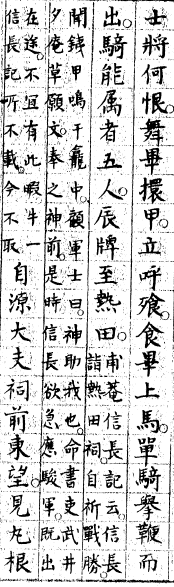 士將何恨。舞畢擐甲。立呼飧。食畢上馬。單騎擧鞭而
出。騎能属者五人。辰牌至熱田。
甫菴信長記云。信長
詣熱田祠。自祈戰勝。
聞錢甲鳴于龕中。顧軍士曰。神助我也。命書吏武井
夕庵草願文。奉之神前。是時信長欲急應駿軍。既出
在途。不宜有此暇。牛一
信長記所不載。今不取
自源大夫祠前東望。見丸根